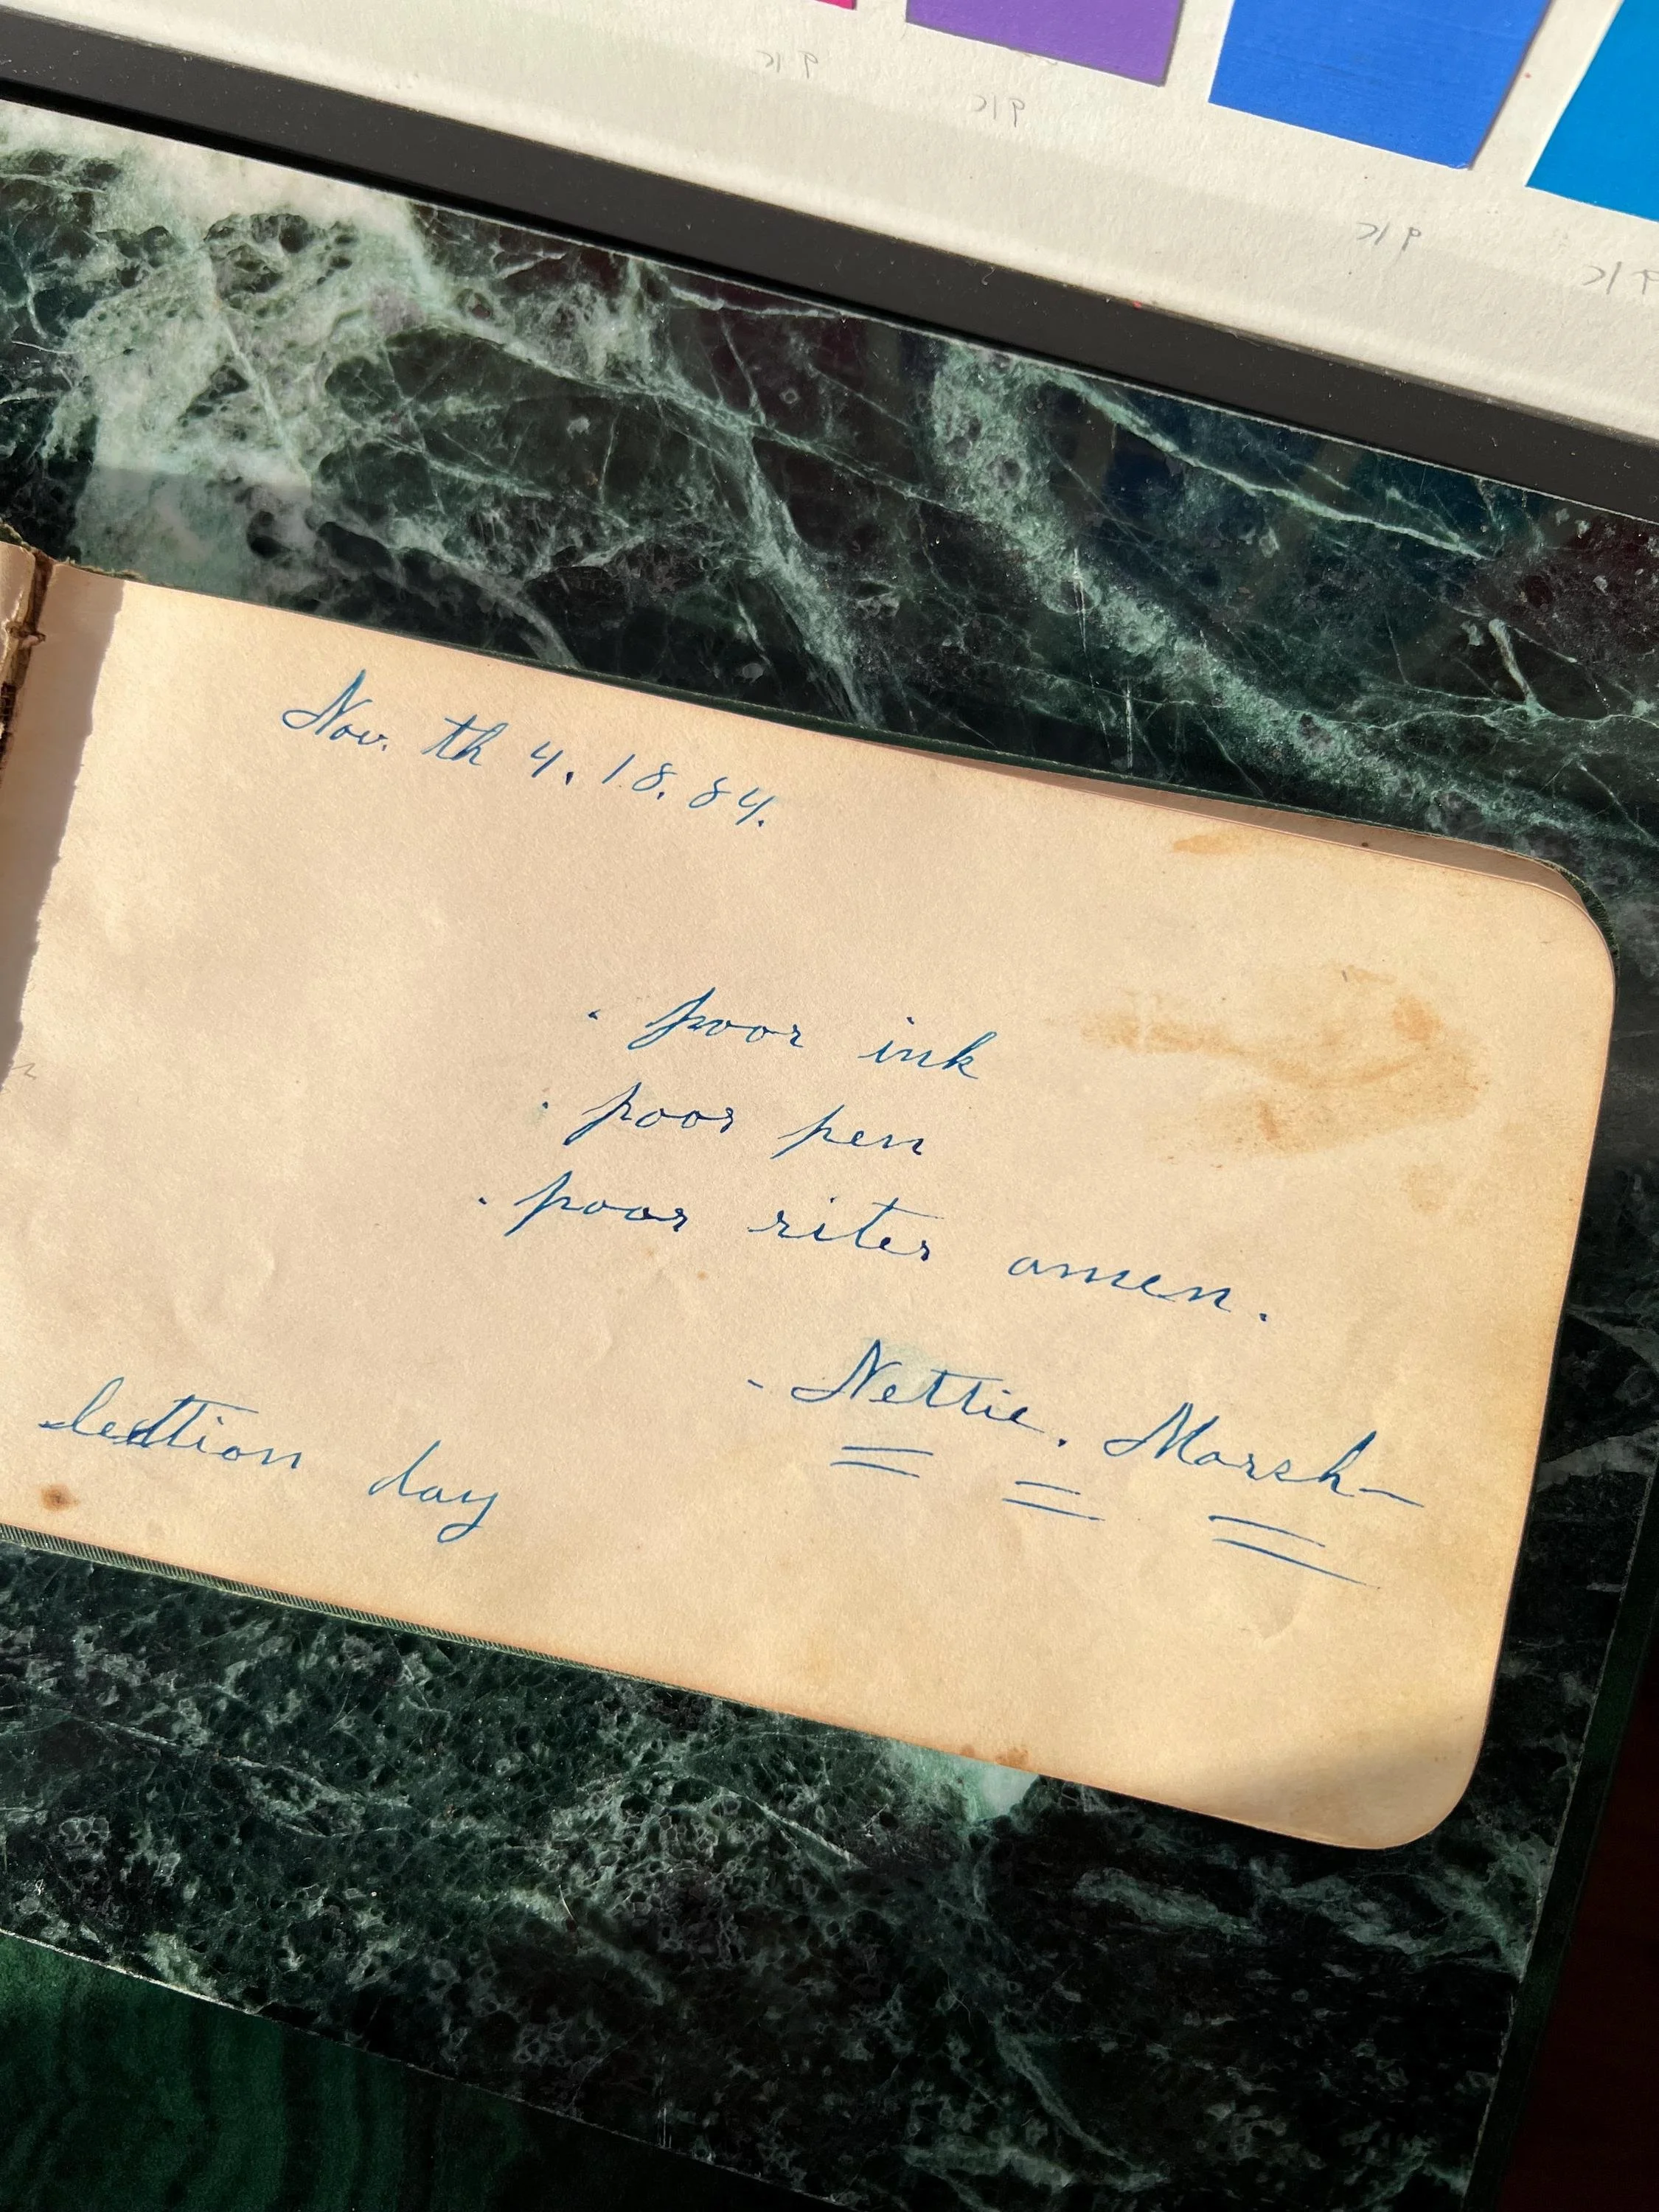 Nov. th 4. 18. 84.
. poor ink
. poor pen
. poor riter amen.
- Nettie. Marsh-
lection day